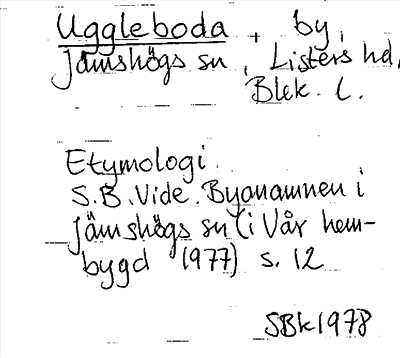 Uggleboda, by,
Jämshögs sn, Listers hd,
Blek. l.
Etymologi
S.B. Vide. Byanamnen i
Jämshögs sn (i Vår hem-
bygd 1977) s. 12
SBk 1978